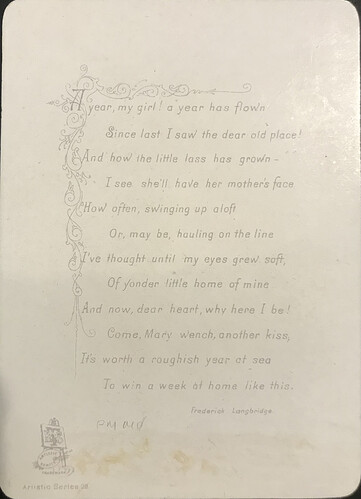 A year, my girl! a year has flown
Since last I saw the dear old place!
And how the little lass has grown-
I see she'll have her mother's face
How often, swinging up aloft
Or, may be, hauling on the line
I've thought until my eyes grew soft,
Of yonder little home of mine
And now, dear heart, why here I be!
Come, Mary wench, another kiss,
It's worth a roughish year at sea
To win a week at home like this.
Frederick Langbridge
Artistic Series